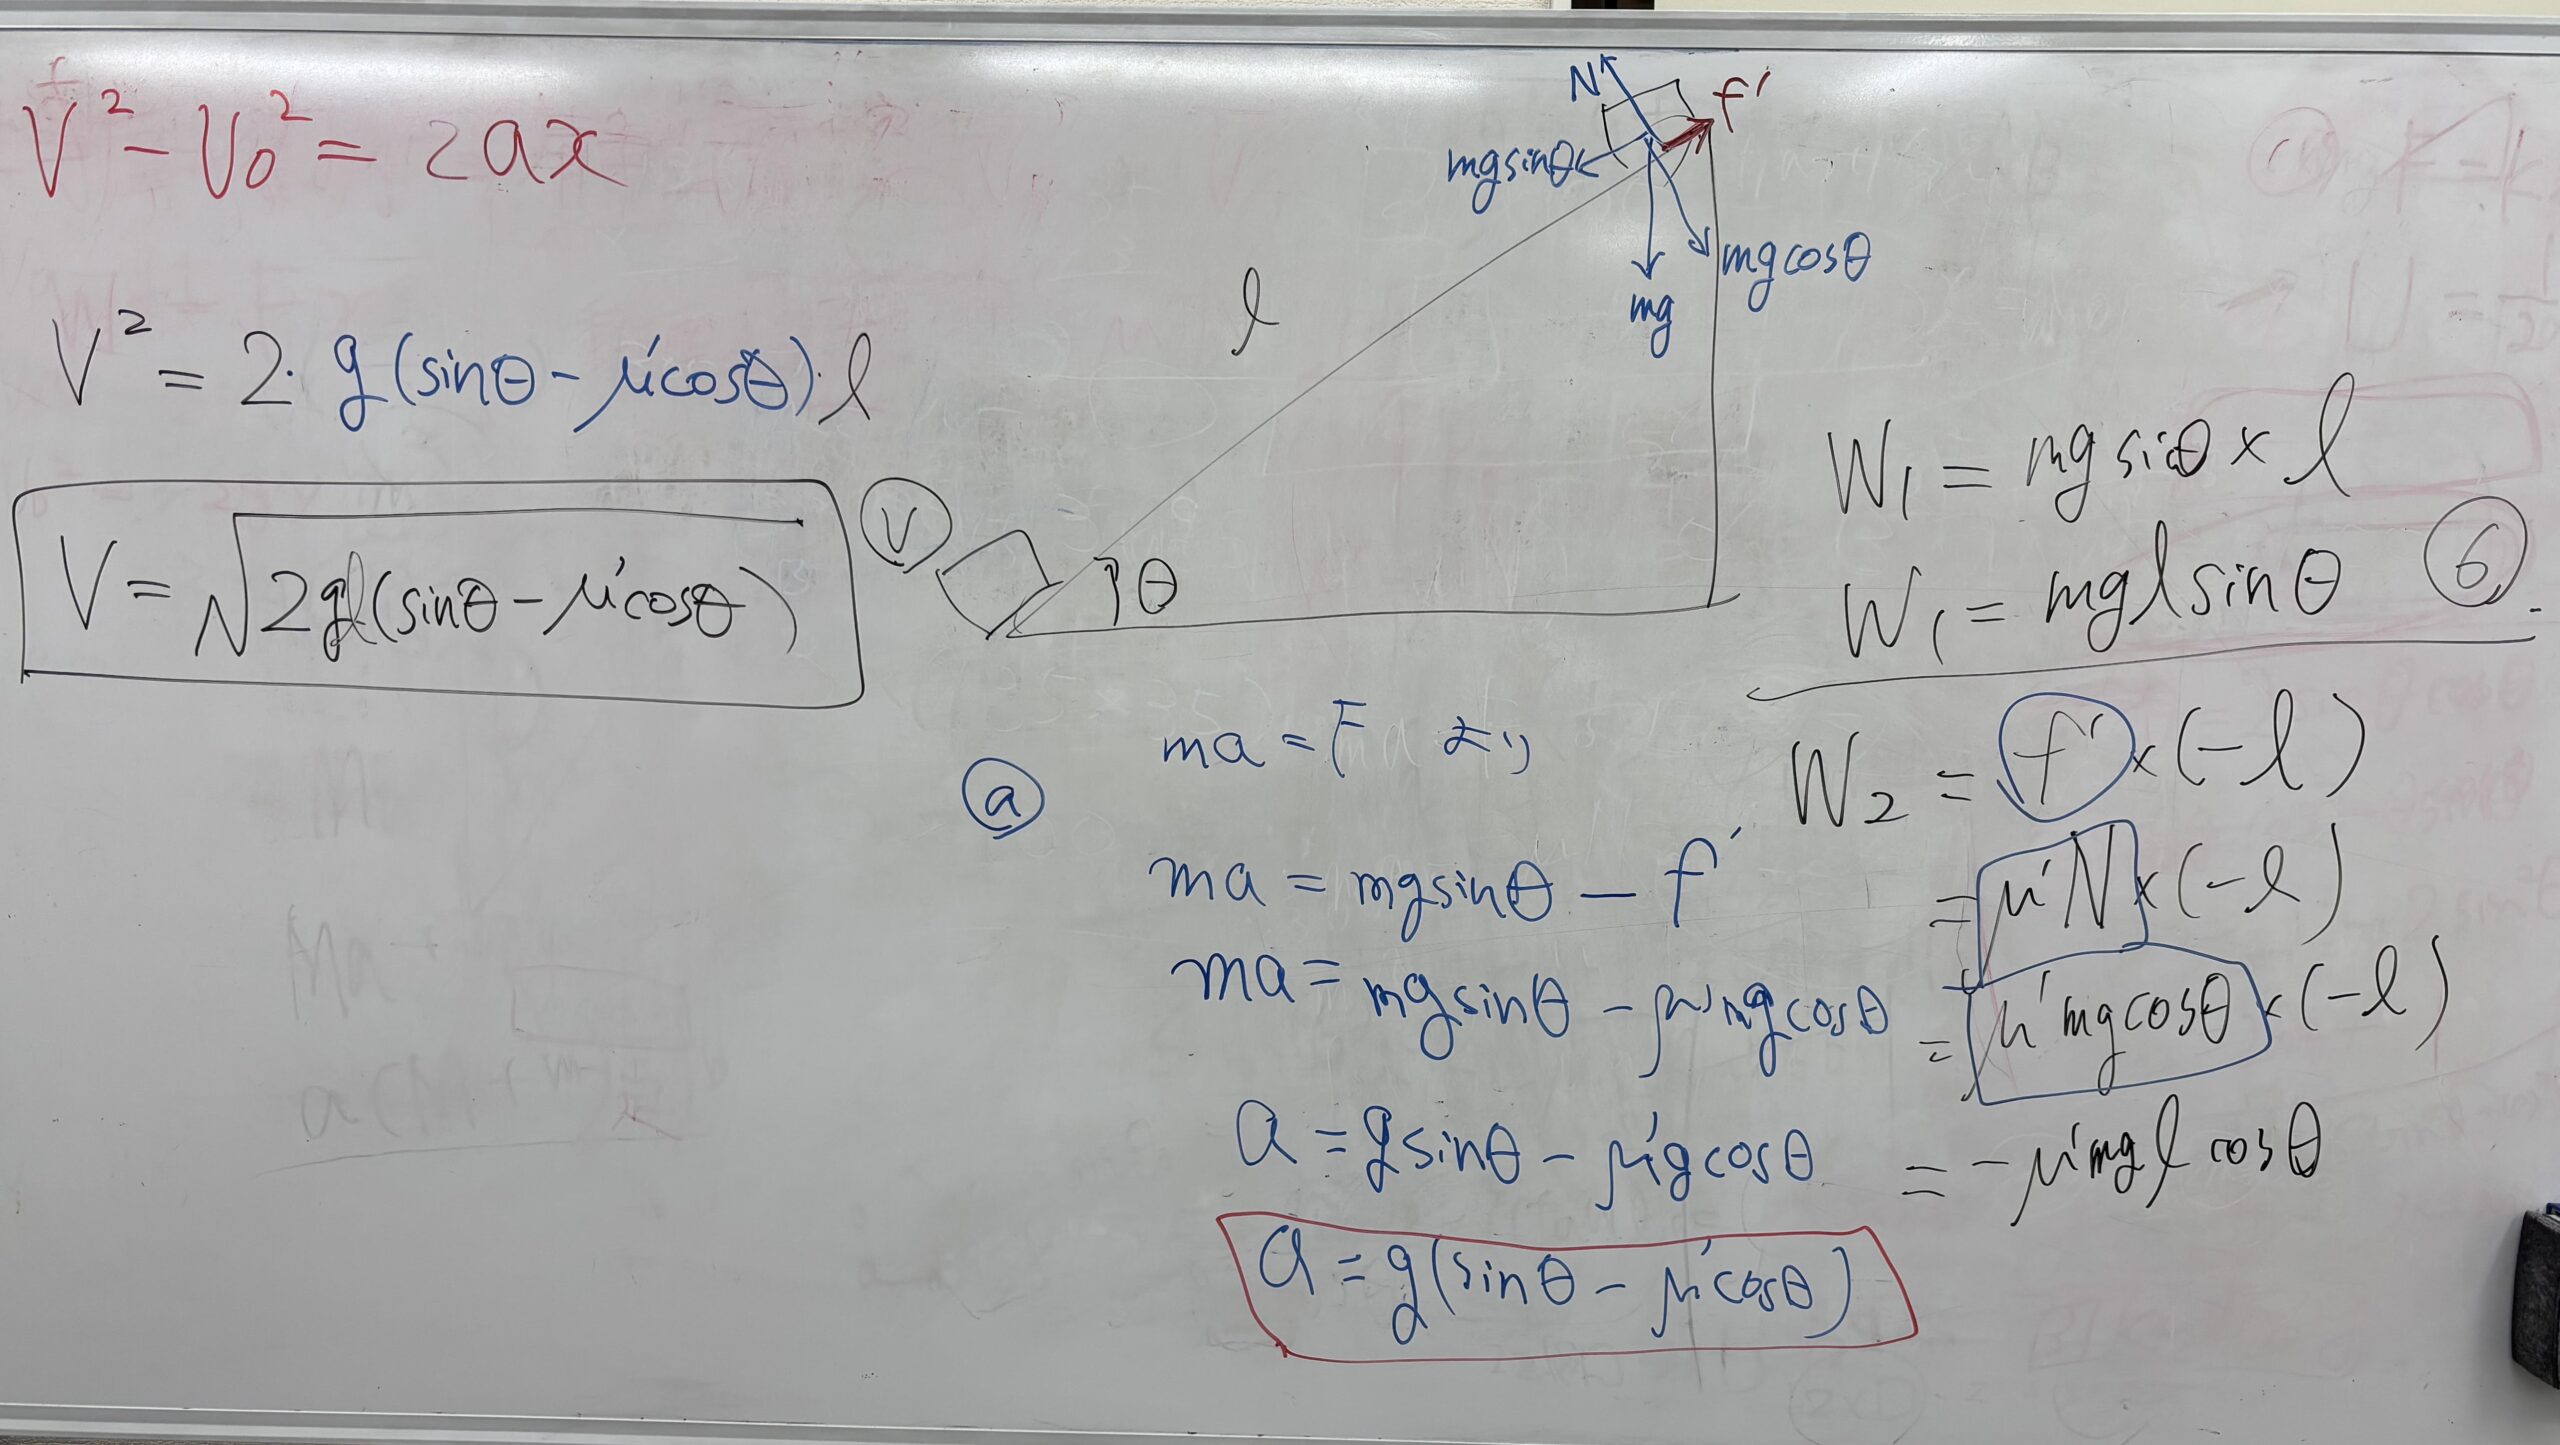 V² - V₀² = 2ax
V² = 2・g(sinθ - μ'cosθ)・l
V = √2gl(sinθ - μ'cosθ)
N
f'
mgsinθ
mgcosθ
mg
l
V
θ
W₁ = mg sinθ × l
W₁ = mgl sinθ
6
a
ma = F より
ma = mgsinθ - f'
ma = mgsinθ - μ'mgcosθ
a = gsinθ - μ'gcosθ
a = g(sinθ - μ'cosθ)
W₂ = f' × (-l)
= μ'N × (-l)
= μ'mgcosθ × (-l)
= -μ'mgl cosθ